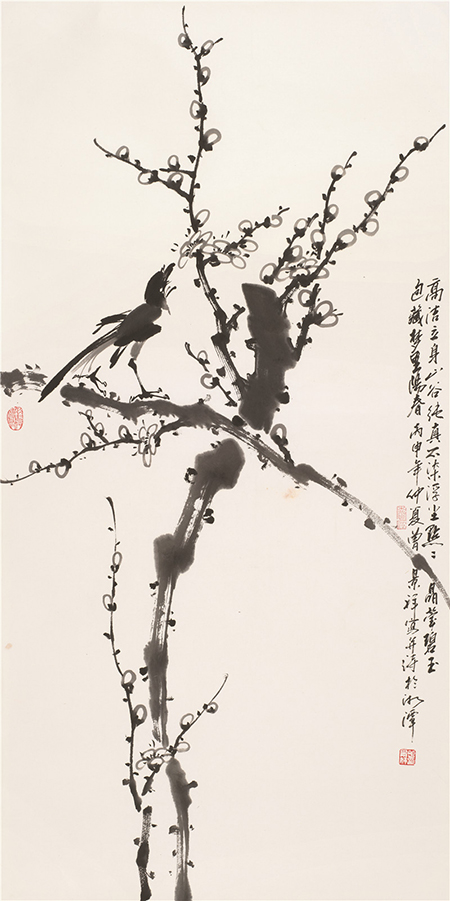 高洁立身山谷纯真不染浮尘点点晶莹碧玉
包藏梦里阳春 丙申年仲夏曾 景祥写并诗于湘潭